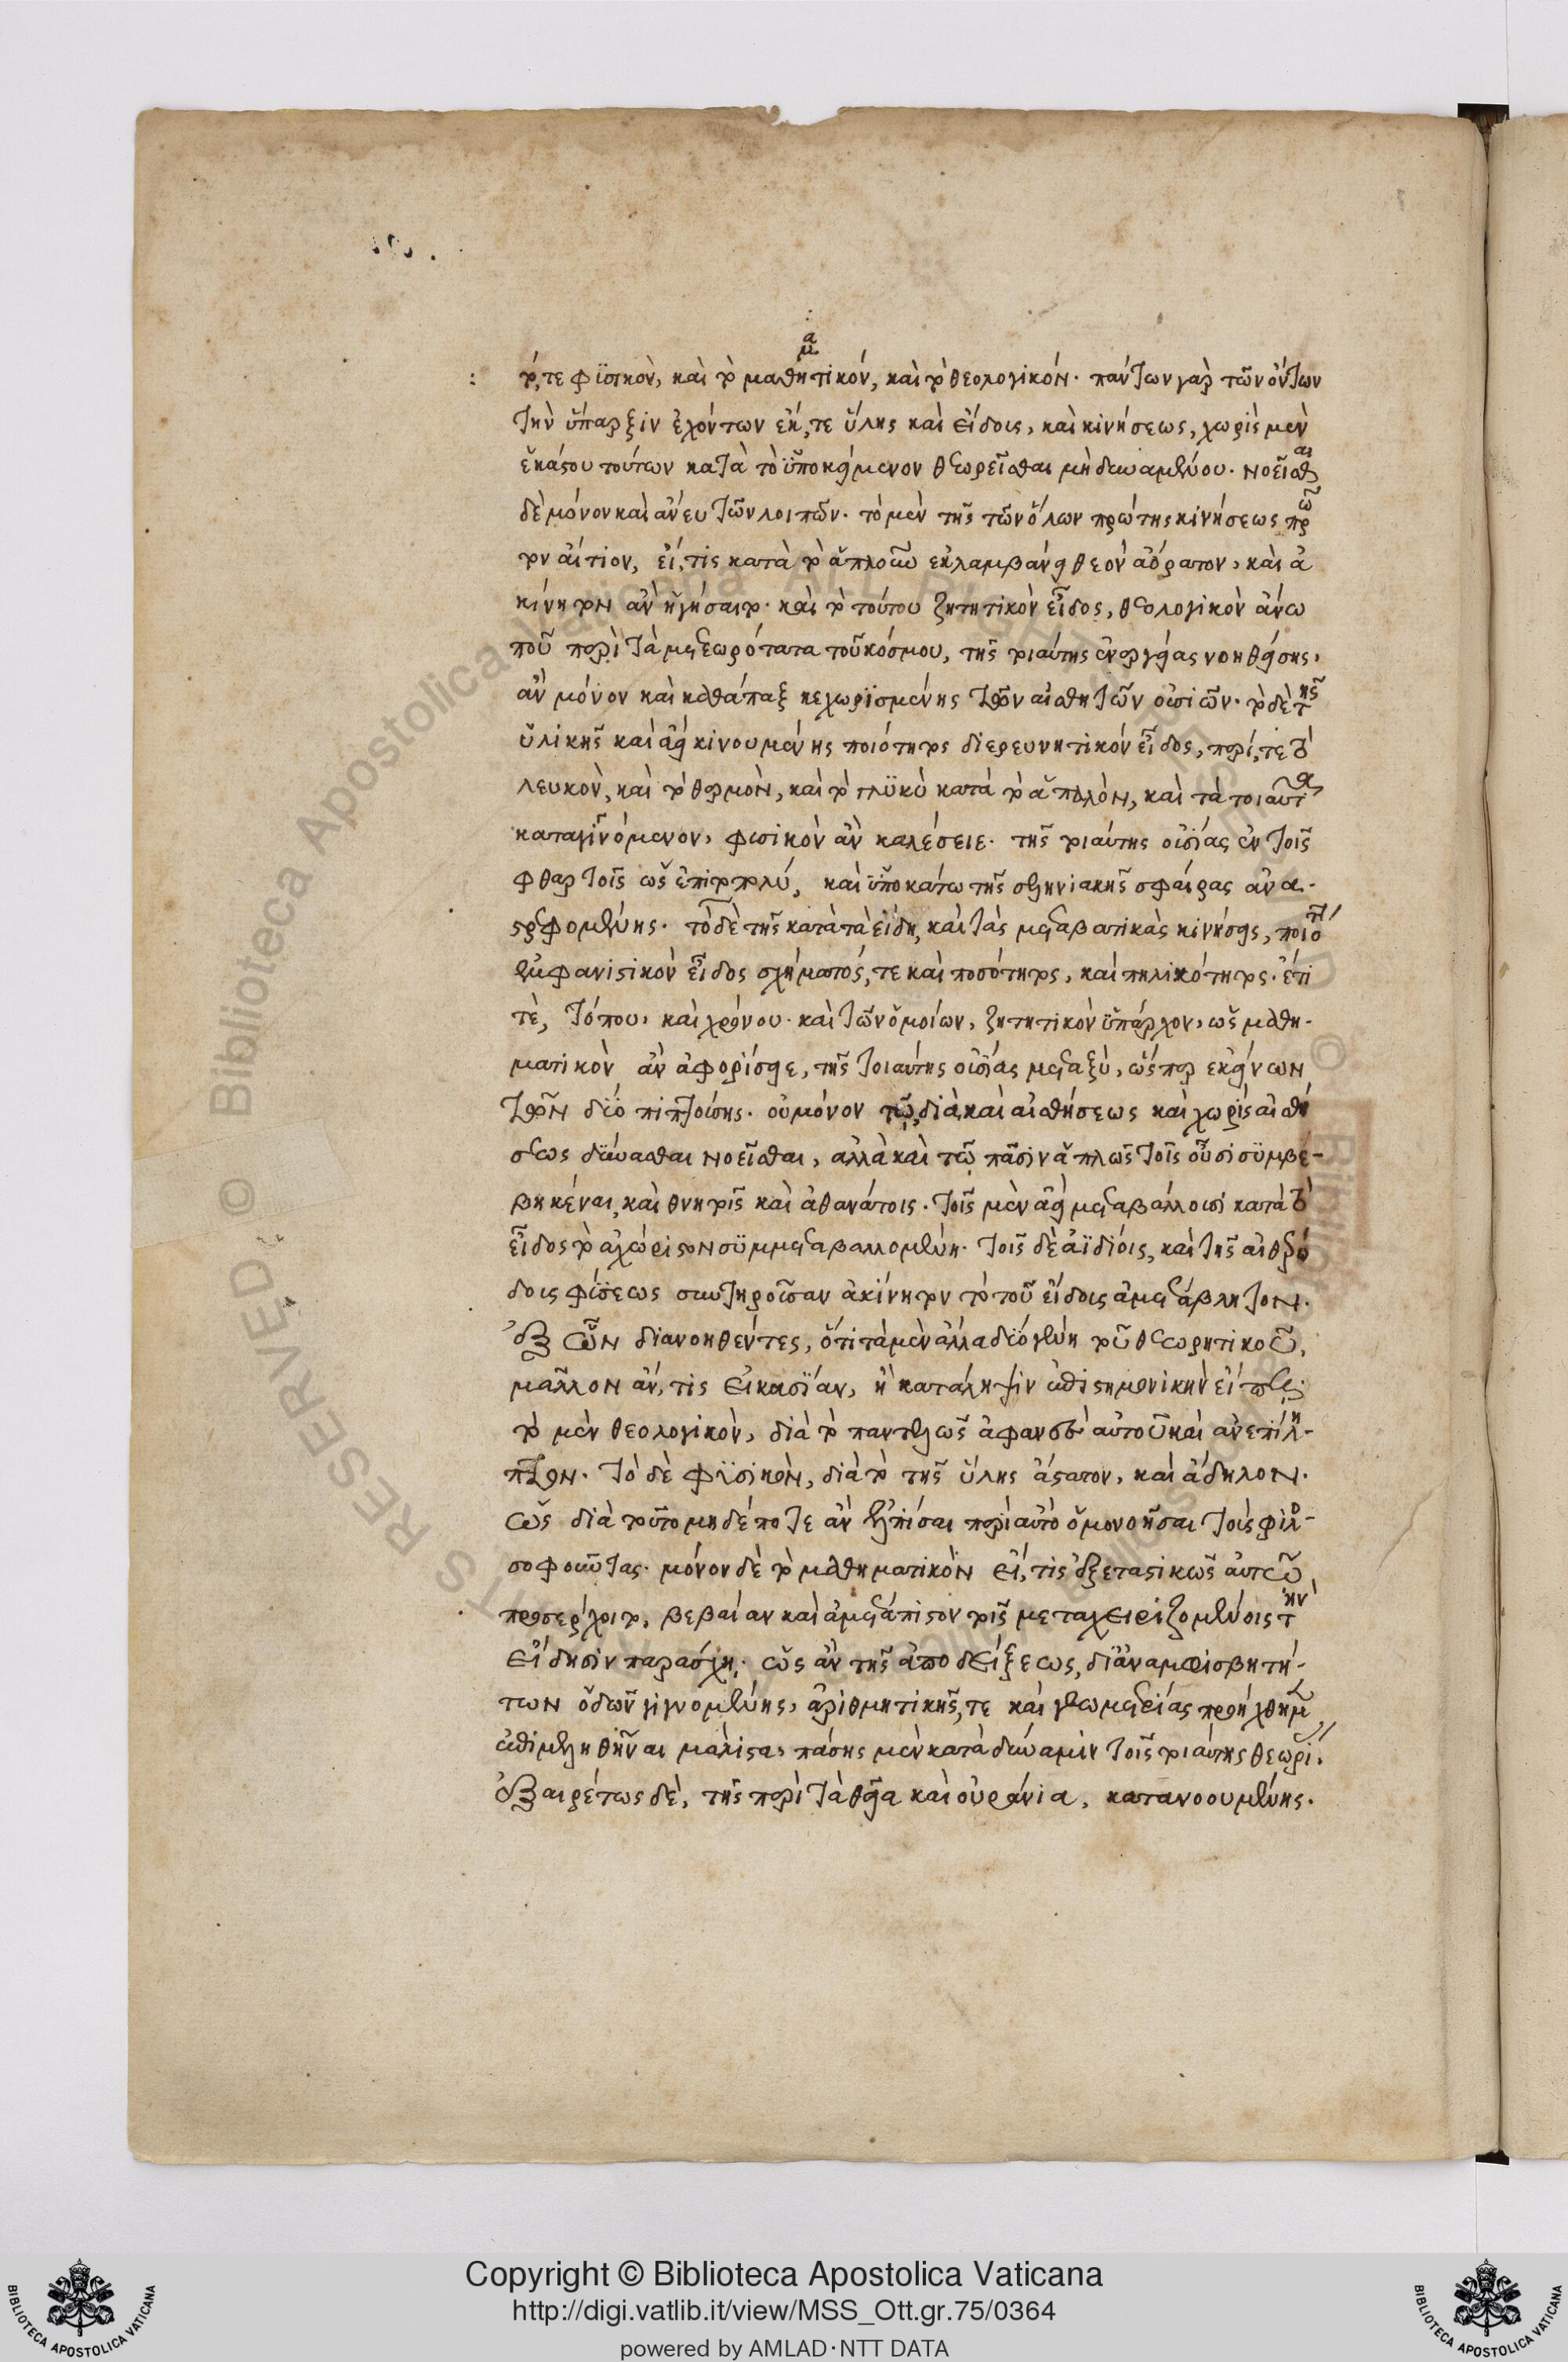 τό,τε φυσικὸν, καὶ τὸ μαθηματικόν, καὶ τὸ θεολογικόν. πάντων γὰρ τῶν ὄντων
τὴν ὕπαρξιν ἐχόντων ἐκ,τε ὕλης καὶ εἴδους, καὶ κινήσεως, χωρὶς μὲν
ἑκάστου τούτων κατὰ τὸ ὑποκείμενον θεωρεῖσθαι μὴ δυναμένου. νοεῖσθαι
δὲ μόνον καὶ ἄνευ τῶν λοιπῶν. τὸ μὲν τῆς τῶν ὅλων πρώτης κινήσεως πρῶ
τον αἴτιον, εἴ,τις κατὰ τὸ ἁπλοῦν ἐκλαμβάνει θεὸν ἀόρατον, καὶ ἀ
κίνητον ἂν ἡγήσαιτο. καὶ τὸ τούτου ζητητικὸν εἶδος, θεολογικὸν ἄνω
που περὶ τὰ μετεωρότατα τοῦ κόσμου, τῆς τοιαύτης ἐνεργείας νοηθείσης,
ἂν μόνον καὶ καθάπαξ κεχωρισμένης τῶν αἰσθητῶν οὐσιῶν. τὸ δὲ τῆς
ὑλικῆς καὶ ἀεὶ κινουμένης ποιότητος διερευνητικόν εἶδος, περί,τε τὸ
λευκὸν, καὶ τὸ θερμὸν, καὶ τὸ γλυκὺ κατὰ τὸ ἁπαλὸν, καὶ τὰ τοιαῦτα
καταγινόμενον, φυσικὸν ἂν καλέσειε. τῆς τοιαύτης οὐσίας ἐν τοῖς
φθαρτοῖς ὡς ἐπιτοπλύ, καὶ ὑποκάτω τῆς σεληνιακῆς σφαίρας ἀνα-
στρεφομένης. τὸ δὲ τῆς κατὰ τὰ εἴδη, καὶ τὰς μεταβατικὰς κινήσεις, ποιότητος
ἐμφανιστικὸν εἶδος σχήματός,τε καὶ ποσότητος, καὶ πηλικότητος. ἔτι
τὲ, τόπου, καὶ χρόνου. καὶ τῶν ὁμοίων, ζητητικὸν ὑπάρχον, ὡς μαθη-
ματικὸν ἂν ἀφορίσειε, τῆς τοιαύτης οὐσίας μεταξὺ, ὥσπερ ἐκείνων
τῶν δύο πιπτούσης. οὐ μόνον τῷ,διὰ,καὶ αἰσθήσεως καὶ χωρὶς αἰσθή
σεως δύνασθαι νοεῖσθαι, ἀλλὰ καὶ τῷ πᾶσιν ἁπλῶς τοῖς οὖσι συμβε-
βηκέναι, καὶ θνητοῖς καὶ ἀθανάτοις. τοῖς μὲν ἀεὶ μεταβάλλουσι κατὰ τὸ
εἶδος τὸ ἀχώριστον συμμεταβαλλομένη. τοῖς δὲ ἀϊδίοις, καὶ τῆς αἰθερώ
δους φύσεως συντηροῦσαν ἀκίνητον τὸ τοῦ εἴδους ἀμετάβλητον.
ἐξ ὧν διανοηθέντες, ὅτι τὰ μὲν ἄλλα δύο γένη τοῦ θεωρητικοῦ,
μᾶλλον ἄν,τις εἰκασίαν, ἢ κατάληψιν ἐπιστημονικὴν εἴποι
τὸ μὲν θεολογικὸν, διὰ τὸ παντελῶς ἀφανὲς αὐτοῦ καὶ ἀνεπίλη-
πτον. τὸ δὲ φυσικὸν, διὰ τὸ τῆς ὕλης ἄστατον, καὶ ἄδηλον.
ὡς διὰ τοῦτο μηδέποτε ἂν ἐλπίσαι περὶ αὐτὸ ὁμονοῆσαι τοὺς φιλο-
σοφοῦντας. μόνον δὲ τὸ μαθηματικὸν εἴ,τις ἐξεταστικῶς αὐτῷ
προσέρχοιτο, βεβαίαν καὶ ἀμετάπιστον τοῖς μεταχειριζομένοις τὴν
εἴδησιν παράσχῃ. ὡς ἂν τῆς ἀποδείξεως, δι' ἀναμφισβητή-
των ὁδῶν γιγνομένης, ἀριθμητικῆς,τε καὶ γεωμετρίας προήχθημεν
ἐπιμεληθῆναι μάλιστα, πάσης μὲν κατὰ δύναμιν τοῖς τοιαύτης θεωρίας
ἐξαιρέτως δὲ, τῆς περὶ τὰ θεῖα καὶ οὐράνια, κατανοουμένης.
© Biblioteca Apostolica Vaticana ALL RIGHTS RESERVED
Copyright © Biblioteca Apostolica Vaticana
http://digi.vatlib.it/view/MSS_Ott.gr.75/0364
powered by AMLAD·NTT DATA
BIBLIOTECA APOSTOLICA VATICANA
BIBLIOTECA APOSTOLICA VATICANA